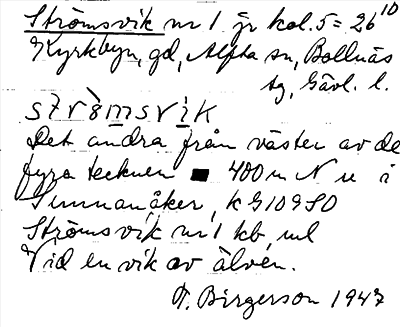 Strömsvik nr 1 jr kol. 5 = 26 10
Kyrkbyn, gd, Alfta sn, Bollnäs
tg, Gävl. l.
strömsvik
Det andra från väster av de
fyra tecknen ■ 400 m N u i
Sunnanåker, k G 109 SO
Strömsvik nr 1 kb, ml
Vid en vik av älven.
Birgerson 1947